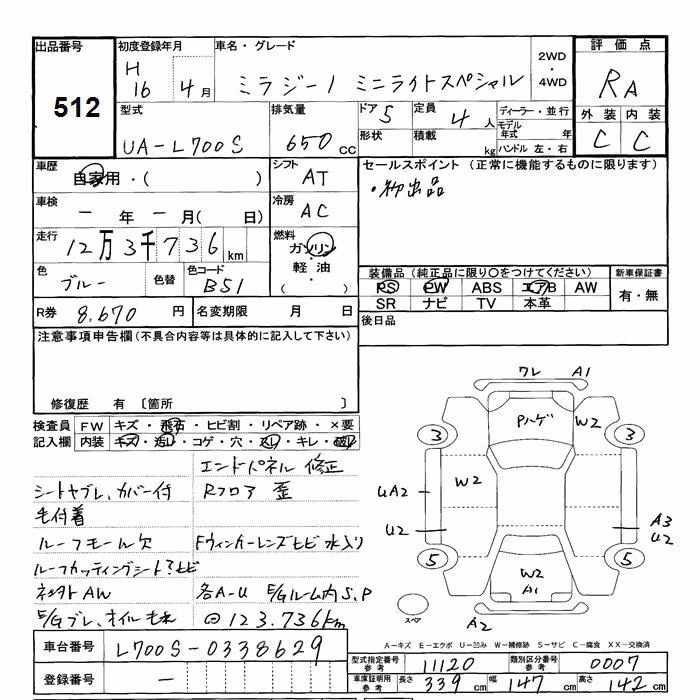 出品番号
512
初度登録年月
H
16 4月
車名・グレード
ミラジーノ ミニライトスペシャル
2WD
・
4WD
評価点
RA
型式
UA-L700S
排気量
650 CC
ドア 5
定員 4人
形状
積載 kg
ディーラー・並行
モデル年式 年
ハンドル 左・右
外装 内装
C C
車歴
自家用・( )
シフト
AT
セールスポイント (正常に機能するものに限ります)
・初出品
車検
ー年ー月( 日)
冷房
AC
走行
12万3千736km
燃料
ガソリン
・
軽油
( )
色
ブルー
色替
色コード
B51
装備品 (純正品に限り○をつけてください)
PS PW ABS エアB AW
SR ナビ TV 本革
新車保証書
有・無
R券 8,670 円
名変期限 月 日
後日品
注意事項申告欄 (不具合内容等は具体的に記入して下さい)
修復歴 有 〔箇所 〕
検査員記入欄
FW キズ・飛石・ヒビ割・リペア跡・×要
内装 キズ・汚レ・コゲ・穴・スレ・キレ・破レ
エンドパネル 修正
シートヤブレ、カバー付
Rフロア 歪
毛付着
ルーフモール欠
Fウィンカーレンズヒビ 水入り
ルーフカッティングシート ヒビ
AW
各A-U E/Gルーム内 S,P
E/Gブレ、オイルモレ
⊙123,736km
ワレ A1
Pハゲ
W2
3 3
UA2
W2
U2
A3
U2
5 5
W2
A1
A2
スペア
A-キズ E-エクボ U-凹み W-補修跡 S-サビ C-腐食 XX-交換済
車台番号
L700S-0338629
登録番号
ー
型式指定番号
参考
11120
類別区分番号
参考
0007
車庫証明用
参考
長さ 339 cm 幅 147 cm 高さ 142 cm